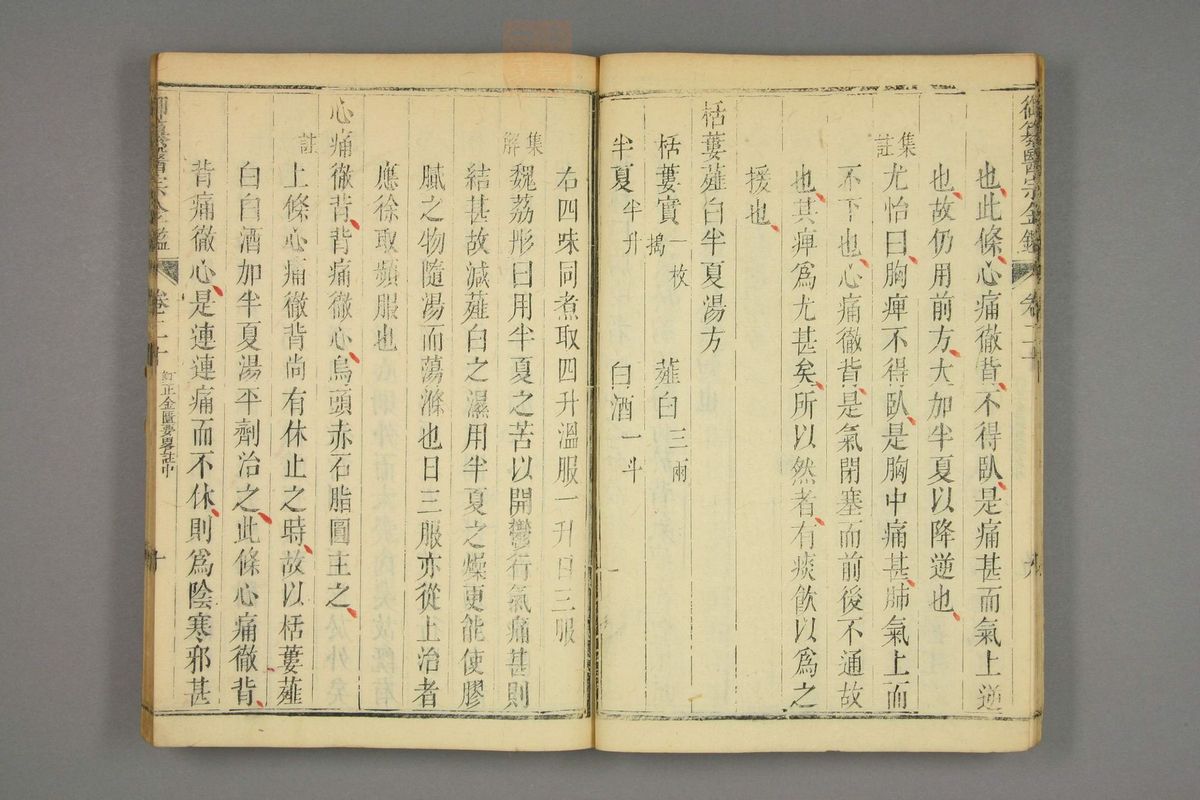 御纂醫宗金鑑 卷二十 九
也此條心痛徹背不得臥是痛甚而氣上逆
也故仍用前方大加半夏以降逆也
集註
尤怡曰胸痺不得臥是胸中痛甚肺氣上而
不下也心痛徹背是氣閉塞而前後不通故
也其痺爲尤甚矣所以然者有痰飮以爲之
援也
栝蔞薤白半夏湯方
栝蔞實一枚搗 薤白三兩
半夏半升 白酒一斗
右四味同煮取四升溫服一升日三服
集解
魏荔彤曰用半夏之苦以開鬱行氣痛甚則
結甚故減薤白之濕用半夏之燥更能使膠
膩之物隨湯而蕩滌也日三服亦從上治者
應徐取頻服也
心痛徹背背痛徹心烏頭赤石脂圓主之
註
上條心痛徹背尚有休止之時故以栝蔞薤
白白酒加半夏湯平劑治之此條心痛徹背
背痛徹心是連連痛而不休則爲陰寒邪甚
御纂醫宗金鑑 卷二十 訂正金匱要畧註中 十